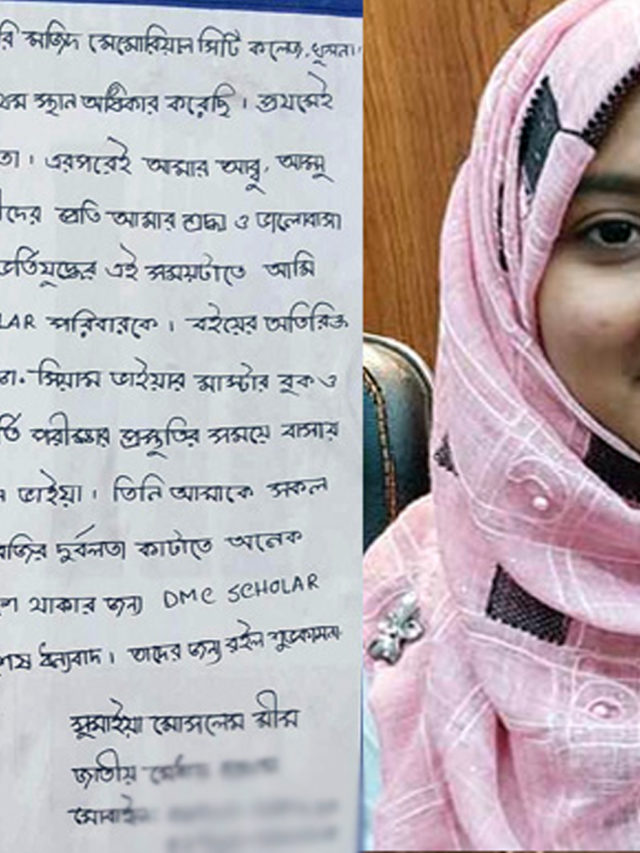 মজিদ মেমোরিয়াল সিটি কলেজ, খুলনা।
স্থান অধিকার করেছি। প্রথমেই
এরপরেই আমার আব্বু, আম্মু
প্রতি আমার শ্রদ্ধা ও ভালোবাসা
এই সময়টাতে আমি
পরিবারকে। বইয়ের অতিরিক্ত
সিয়াম ভাইয়ার মাস্টার বুক ও
পরীক্ষার প্রস্তুতির সময়ে বাসায়
ভাইয়া। তিনি আমাকে সকল
দুর্বলতা কাটাতে অনেক
থাকার জন্য DMC SCHOLAR
ধন্যবাদ। তাদের জন্য রইল শুভকামনা
সুমাইয়া মোসলেম মীম
জাতীয়